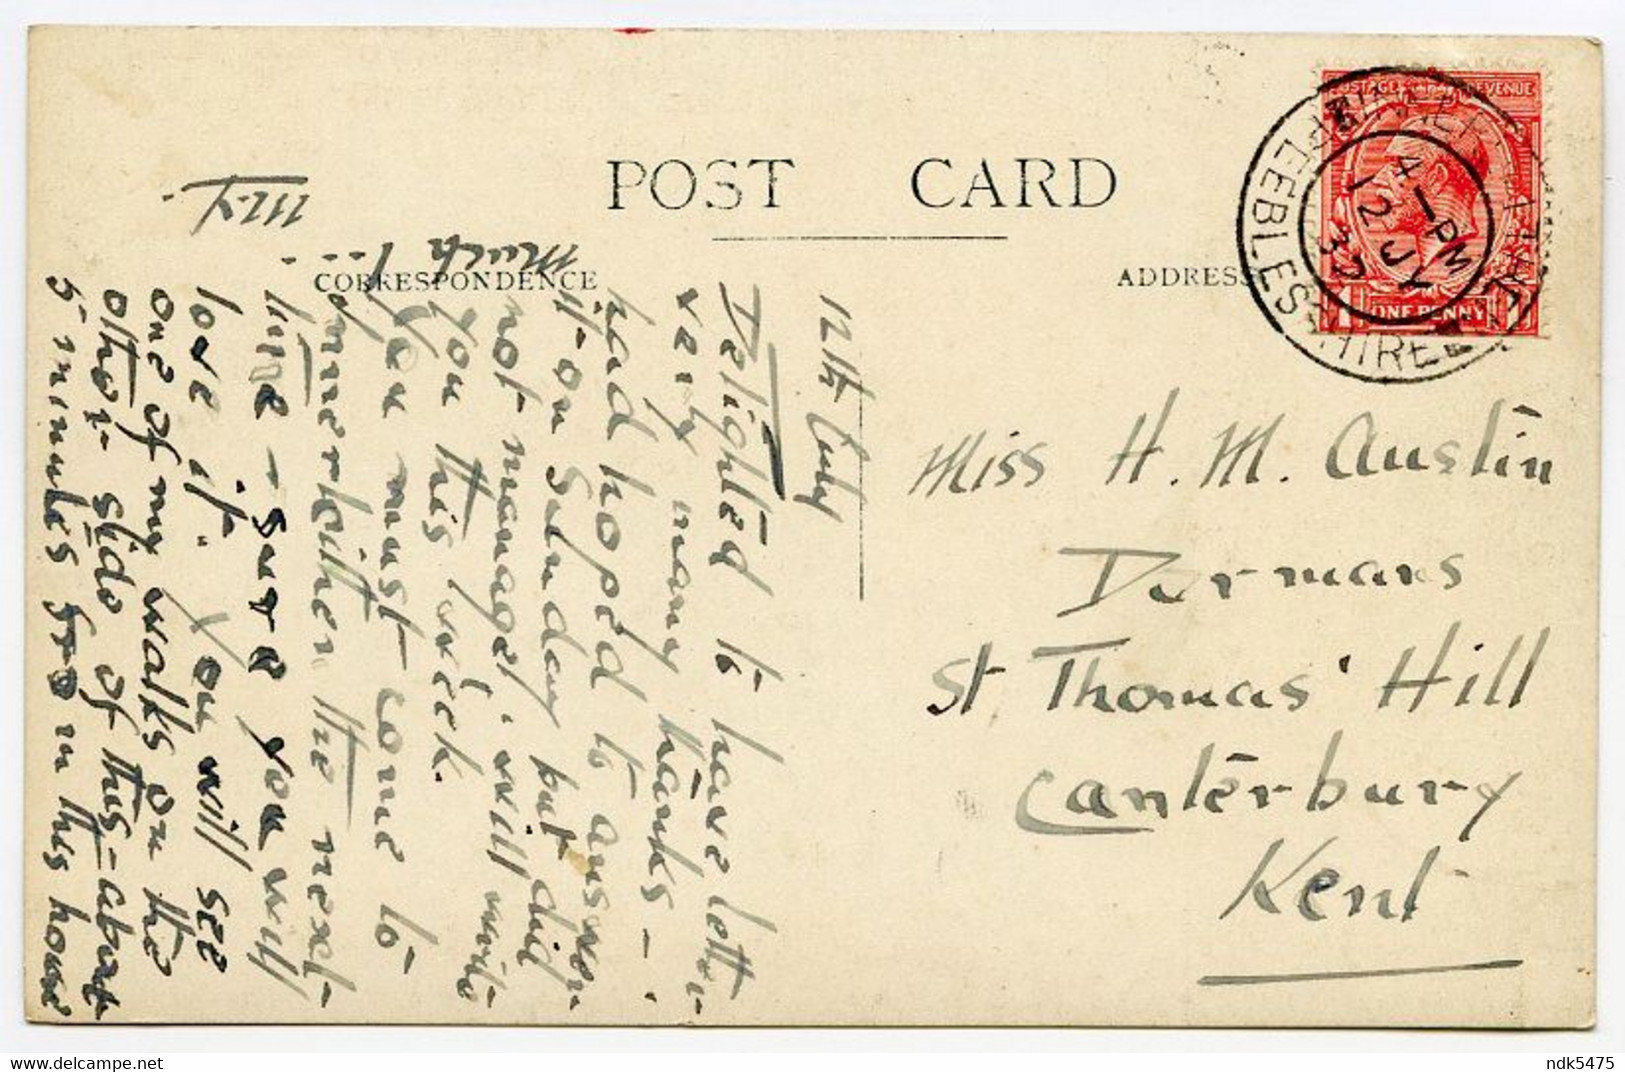 POST CARD
CORRESPONDENCE
ADDRESS
POSTAGE REVENUE
ONE PENNY
4-PM
12 JY
32
PEEBLES-SHIRE
12th July
Delighted to have letter
very many thanks -
had hoped to answer
it on Sunday but did
not manage. will write
you this week.
You must come to
Innerleithen the next
time - sure you will
love it. You will see
one of my walks on the
other side of this - about
5 minutes from this house
Much l...
Miss H. M. Austin
Dormans
St Thomas' Hill
Canterbury
Kent
ndk5475